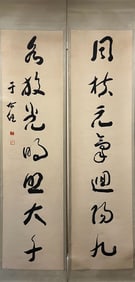 同扶元氣迴陽九
各放光明照大千
于右任